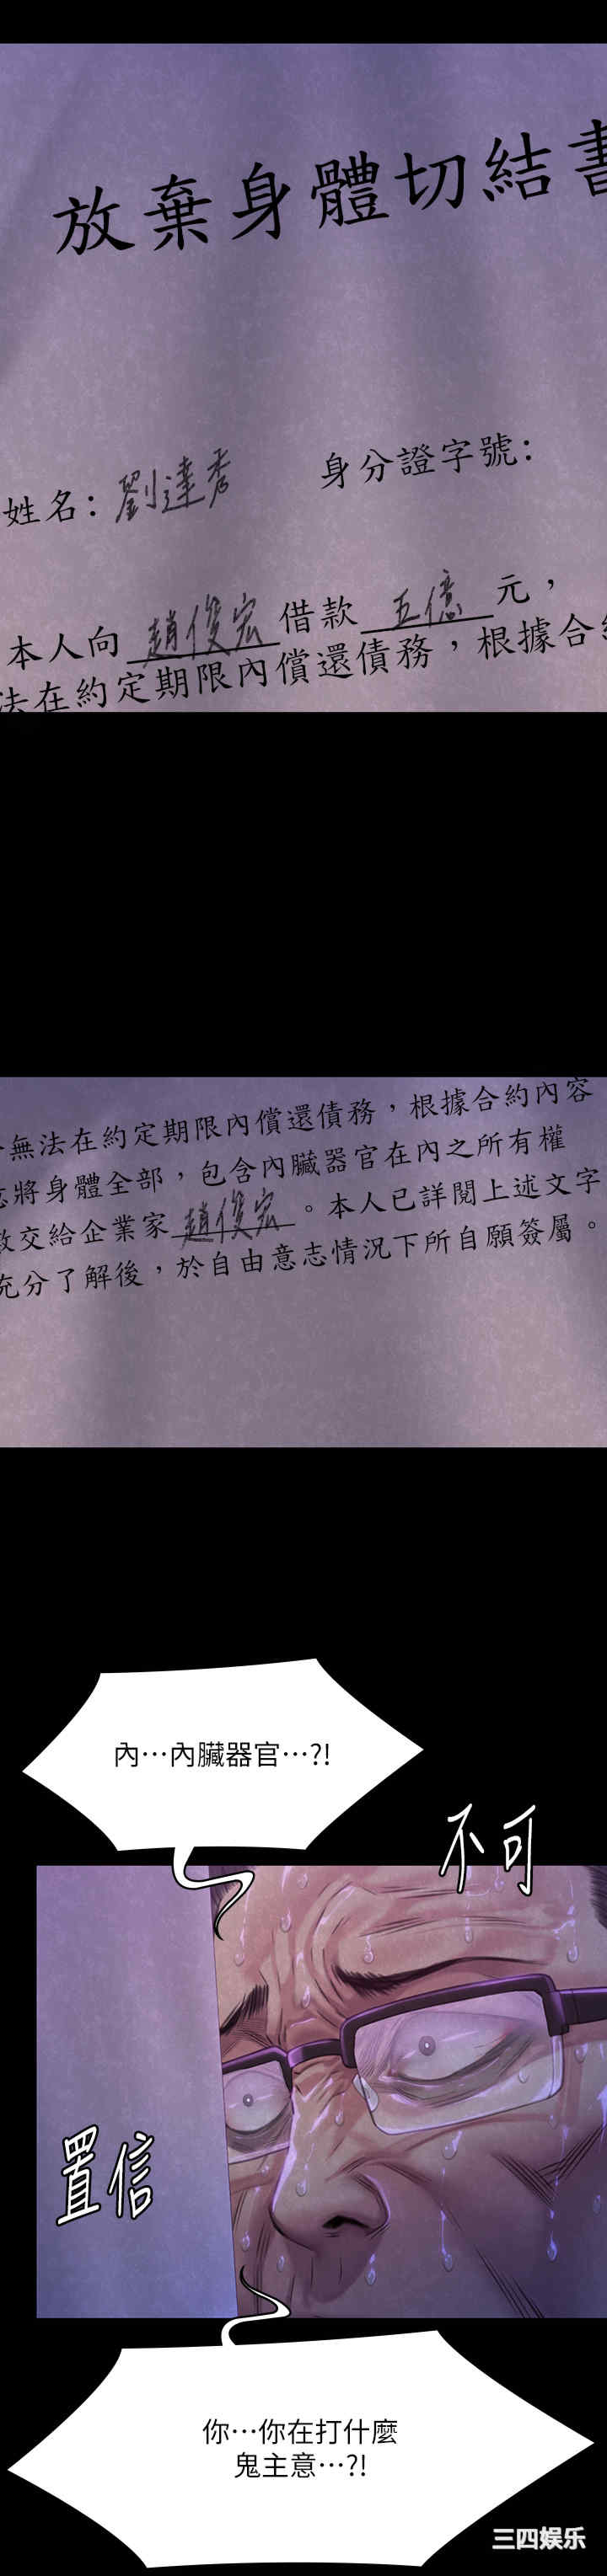 放棄身體切結書
姓名：劉達秀 身分證字號：
本人向趙俊宏借款五億元，
法在約定期限內償還債務，根據合約
無法在約定期限內償還債務，根據合約內容
將身體全部，包含內臟器官在內之所有權
交給企業家趙俊宏。本人已詳閱上述文字
充分了解後，於自由意志情況下所自願簽屬。
內…內臟器官…?!
不可
置信
你…你在打什麼
鬼主意…?!
三四娱乐